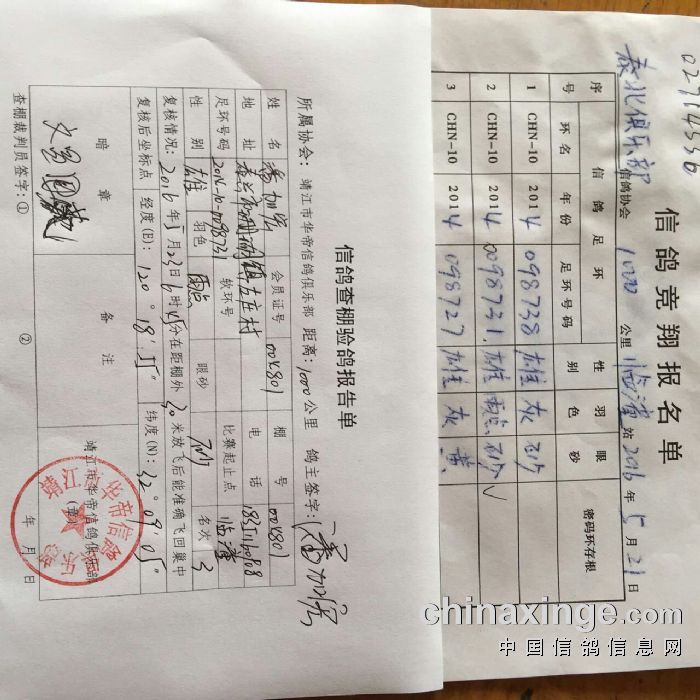 02714336
信鸽竞翔报名单
泰北俱乐部 信鸽协会 1000 公里 临潼 站 2016 年 5 月 21 日
序号 信鸽足环 性别 羽色 眼砂 密码环存根
环名 年份 足环号码
1 CHN-10 2014 098738 雄 灰 砂
2 CHN-10 2014 0098731 雄 雨点 砂 √
3 CHN-10 2014 098727 雄 灰 黄
信鸽查棚验鸽报告单
所属协会：靖江市华帝信鸽俱乐部 距离：1000公里 鸽主签字：
姓名 会员证号 004801 棚号 004801
地址 电话
足环号码 2014-10-0098731 软环号 比赛起止点 临潼
性别 雄 羽色 雨点 眼砂 砂 名次 3
复核情况：2016年5月23日6时45分在距棚外30米放飞后能准确飞回巢中
复核后坐标点 经度(E)：120°18′55″ 纬度(N)：32°09′05″
暗章 备注 靖江市华帝信鸽俱乐部
(章)
年 月 日
查棚裁判员签字：① ②
靖江市华帝信鸽俱乐部
chinaxinge.com
中国信鸽信息网